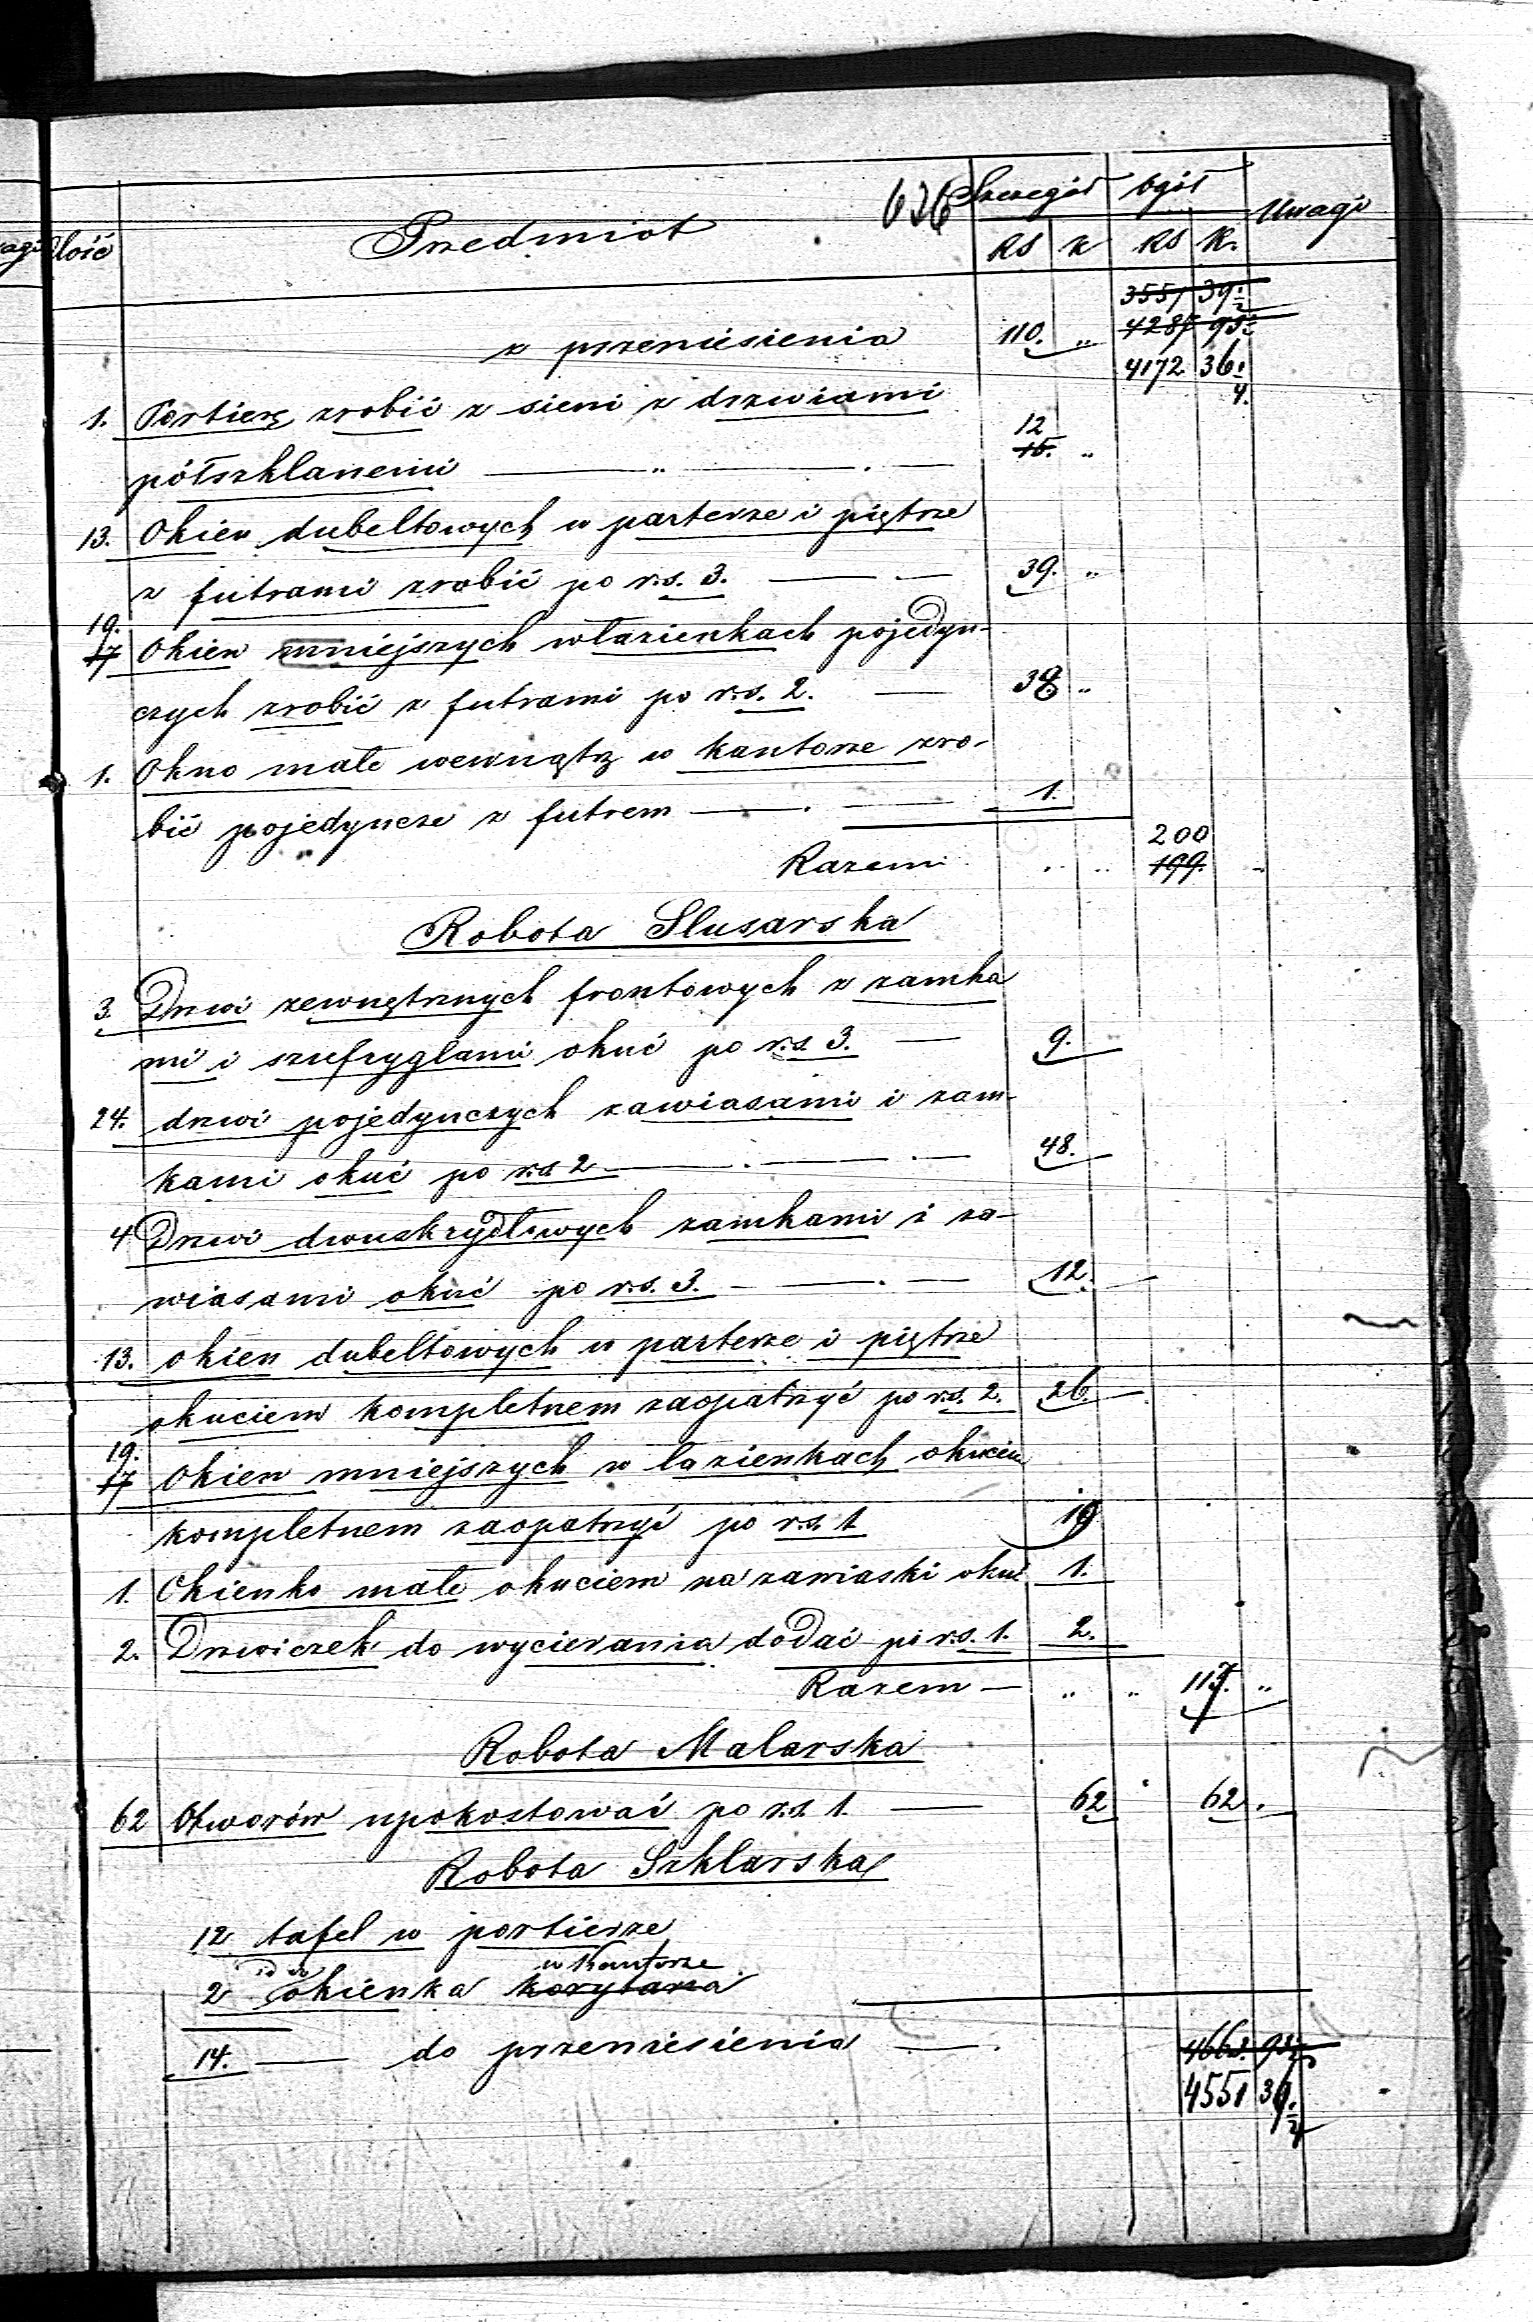 626
Ilość Przedmiot Szczegół Ogół Uwagi
RS K RS K.
3551 39 1/2
z przeniesienia 110. „ 4287 93 1/2
4172 36 1/4.
1. Portierę zrobić z sieni z drzwiami
półszklanemi — „ — . — 12 15. „
13. Okien dubeltowych w parterze i piętrze
z futrami zrobić po r.s. 3. — . — 39. „
19. 17 Okien mniejszych w łazienkach pojedyn-
czych zrobić z futrami po r.s. 2. — 38 „
1. Okno małe wewnątrz w kantorze zro-
bić pojedyncze z futrem — . — 1.
200
Razem . . „ 199. „
Robota Slusarska
3. Drzwi zewnętrznych frontowych z zamka
mi i szufryglami okuć po r.s. 3. — 9. —
24. drzwi pojedynczych zawiasami i zam-
kami okuć po r.s. 2 — . — . — 48.
4 Drzwi dwuskrzydłowych zamkami i za-
wiasami okuć po r.s. 3. — — . — 12. —
13. okien dubeltowych w parterze i piętrze
okuciem kompletnem zaopatrzyć po r.s. 2. 26. —
19. 17 Okien mniejszych w łazienkach okuciem
kompletnem zaopatrzyć po r.s. 1 19
1. Okienko małe okuciem na zawiaski okuć 1.
2. Drzwiczek do wycierania dodać po r.s. 1. 2.
Razem — „ „ 117. „
Robota Malarska
62 Otworów upokostować po r.s. 1. — 62 62.
Robota Szklarska
12 tafel w portierze
w Kantorze
2 okienka korytarza
14. — do przeniesienia — . 4662. 93 1/2
4551 36 1/4